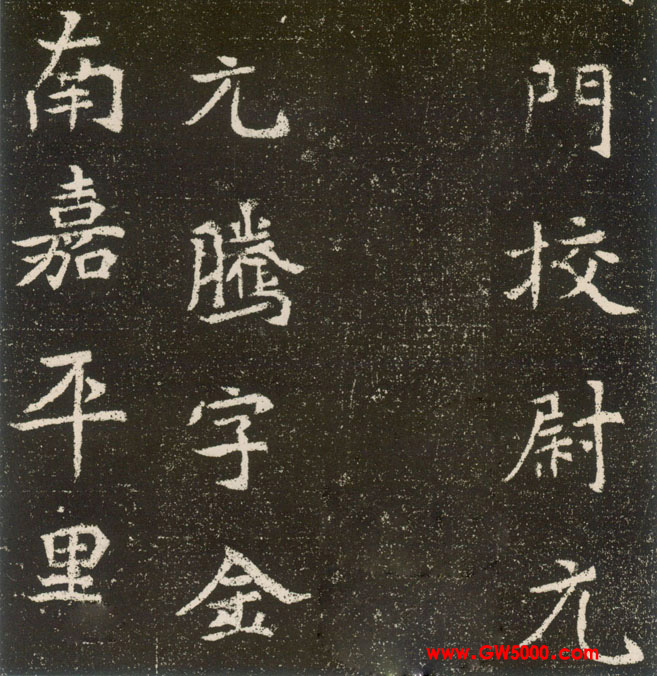 門校尉元
元騰字金
南嘉平里
www.GW5000.com